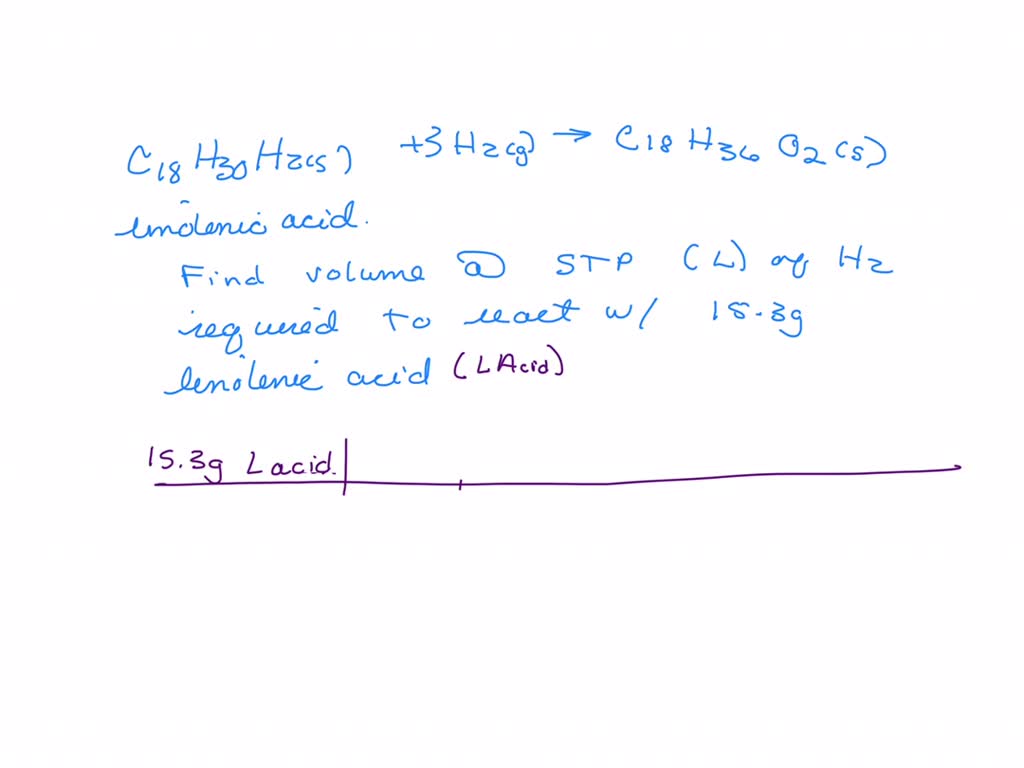 C18 H30 H2(s) +3 H2(g) → C18 H36 O2 (s)
linolenic acid.
Find volume @ STP (L) of H2
required to react w/ 15.3g
linolenic acid (LAcid)
15.3g Lacid